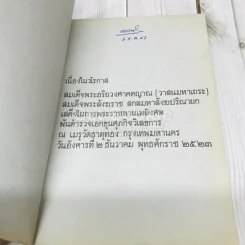 เนื่องในวโรกาส
สมเด็จพระอริยวงศาคตญาณ (วาสนมหาเถระ)
สมเด็จพระสังฆราช สกลมหาสังฆปริณายก
เสด็จในการพระราชทานเพลิงศพ
พันตำรวจเอกขุนศุภกิจวิเลขการ
ณ เมรุวัดธาตุทอง กรุงเทพมหานคร
วันอังคารที่ ๒ ธันวาคม พุทธศักราช ๒๕๒๓